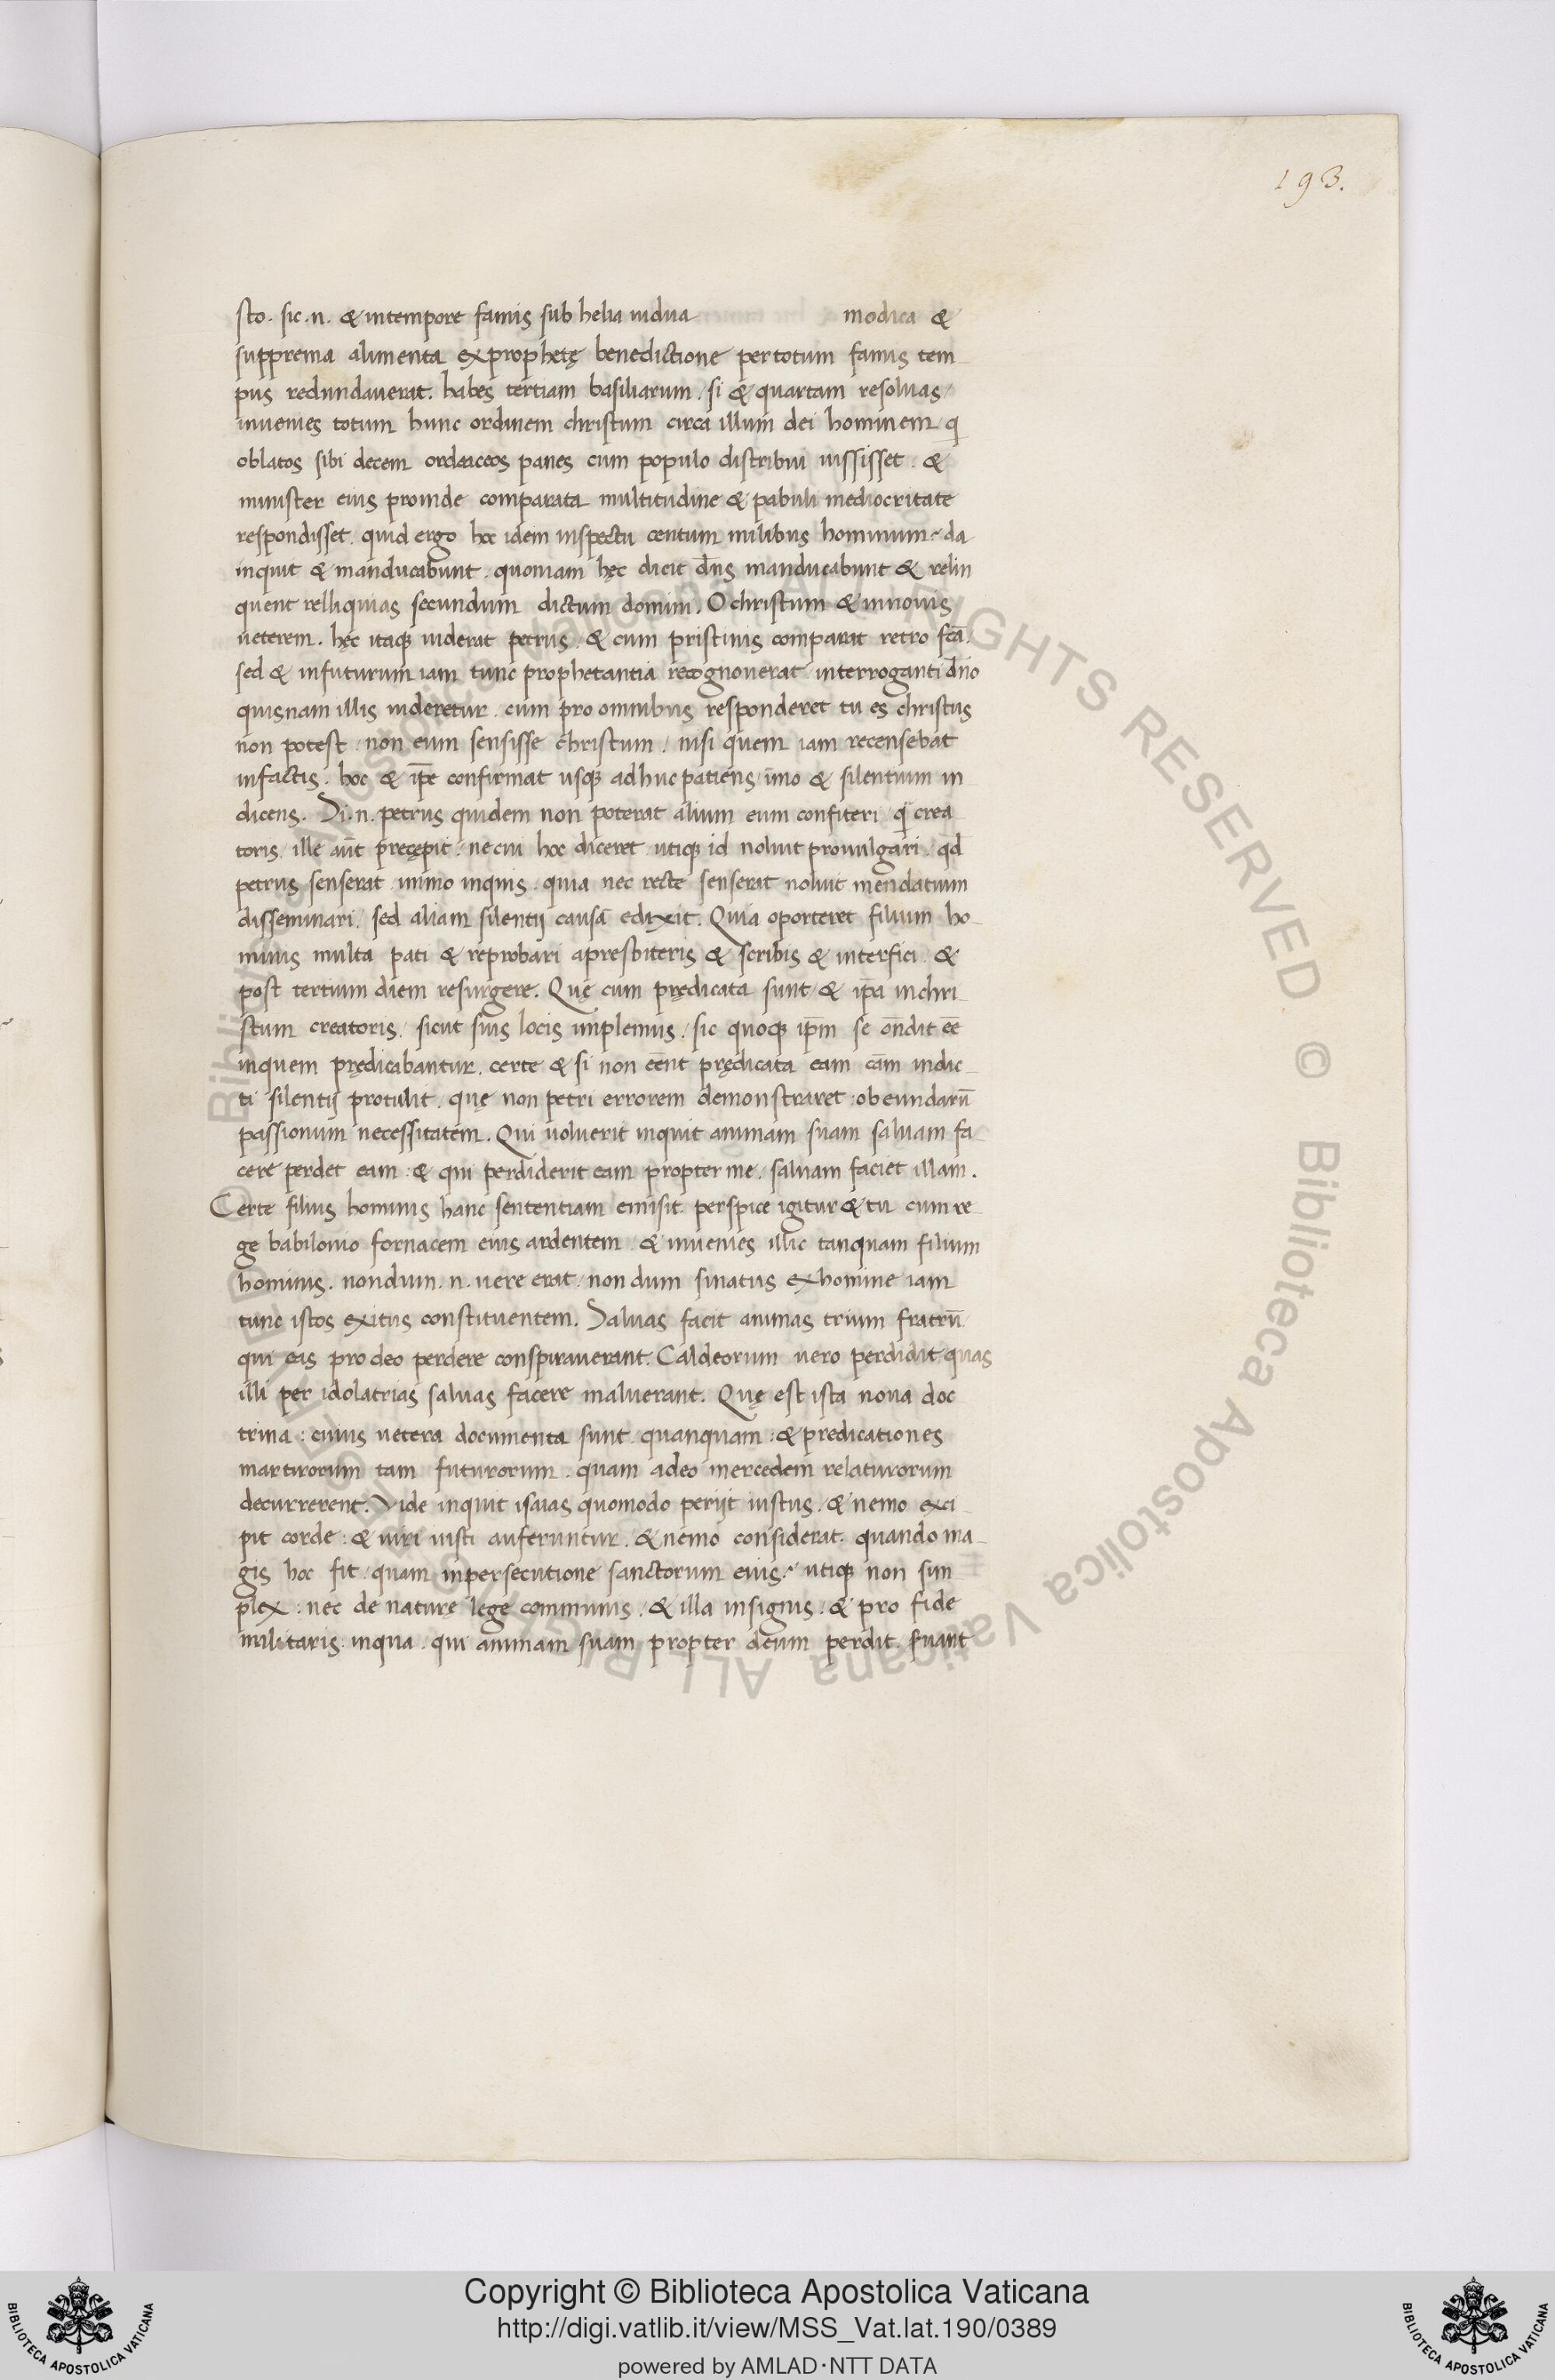 193.
sto. sic .n. & intempore famis sub helia uidua modica &
supprema alimenta exprophetę benedictione pertotum famis tem
pus redundauerat. habes tertiam basiliarum. si & quartam resoluas
inuenies totum hunc ordinem christum circa illum dei hominem q̄
oblatos sibi decem ordeaceos panes cum populo distribui iussisset. &
minister eius proinde comparata multitudine & pabuli mediocritate
respondisset. quid ergo hoc idem inspectu centum milibus hominum? da
inquit & manducabunt. quoniam hęc dicit dn̄s manducabunt & relin
quent relliquias secundum dictum domini. O christum & innouis
ueterem. hęc itaq; uiderat petrus. & cum pristinis comparat retro fcā.
sed & infuturum iam tunc prophetantia recognouerat interroganti dn̄o
quisnam illis uideretur. cum pro omnibus responderet tu es christus
non potest. non eum sensisse christum. nisi quem iam recensebat
infactis. hoc & ip̄e confirmat usq; adhuc patiens īmo & silentium in
dicens. Si .n. petrus quidem non poterat alium eum confiteri q̄ crea
toris. ille aūt precępit. ne cui hoc diceret utiq; id noluit prouulgari. qd̄
petrus senserat immo inquis. quia nec recte senserat noluit mendatium
disseminari. sed aliam silentij causā edixit. Quia oporteret filium ho
minis multa pati & reprobari apresbiteris & scribis & interfici. &
post tertium diem resurgere. Quę cum prędicata sunt & ip̄a inchri
stum creatoris. sicut suis locis implemus. sic quoq; ip̄m se on̄dit eē
inquem prędicabantur. certe & si non eēnt prędicata eam cām indic
ti silentij protulit. quę non petri errorem demonstraret: obeundarū
passionum necessitatem. Qui uoluerit inquit animam suam saluam fa
cere perdet eam: & qui perdiderit eam propter me. saluam faciet illam.
Certe filius hominis hanc sententiam emisit. perspice igitur & tu cum re
ge babilonio fornacem eius ardentem & inuenies illic tanquam filium
hominis. nondum .n. uere erat. non dum sinatus exhomine iam
tunc istos exitus constituentem. Saluas facit animas trium fratrū
qui eas pro deo perdere conspirauerant. Caldeorum uero perdidit quas
illi per idolatrias saluas facere maluerant. Quę est ista noua doc
trina: cuius uetera documenta sunt quanquam: & predicationes
martirorum tam futurorum. quam adeo mercedem relaturorum
decurrerent. Vide inquit isaias quomodo perijt iustus. & nemo exci
pit corde: & uiri iusti auferuntur. & nemo considerat. quando ma
gis hoc fit. quam inpersecutione sanctorum eius? utiq; non sim
plex: nec de naturę lege communis. & illa insignis. & pro fide
militaris inqua. qui animam suam propter deum perdit. suant
© Biblioteca Apostolica Vaticana ALL RIGHTS RESERVED
Copyright © Biblioteca Apostolica Vaticana
http://digi.vatlib.it/view/MSS_Vat.lat.190/0389
powered by AMLAD·NTT DATA
BIBLIOTECA APOSTOLICA VATICANA
BIBLIOTECA APOSTOLICA VATICANA